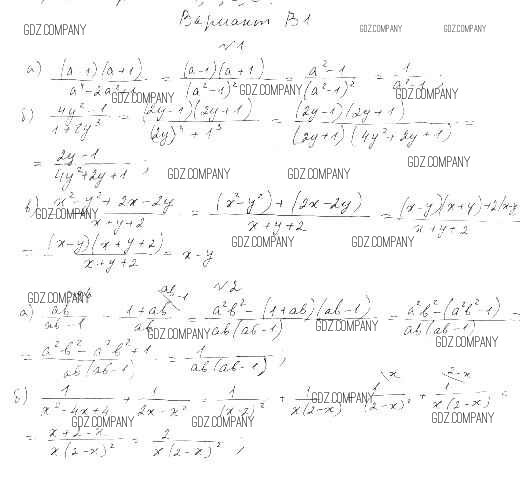 Вариант B1
GDZ.COMPANY GDZ.COMPANY GDZ.COMPANY
№1
а) (a-1)(a+1) / a⁴-2a²+1 = (a-1)(a+1) / (a²-1)² = a²-1 / (a²-1)² = 1 / a²-1 ;
GDZ.COMPANY GDZ.COMPANY GDZ.COMPANY
б) 4y²-1 / 1+8y³ = (2y-1)(2y+1) / (2y)³+1³ = (2y-1)(2y+1) / (2y+1)(4y²+2y+1) =
= 2y-1 / 4y²+2y+1 ;
GDZ.COMPANY GDZ.COMPANY GDZ.COMPANY
в) x²-y²+2x-2y / x+y+2 = (x²-y²)+(2x-2y) / x+y+2 = (x-y)(x+y)+2(x-y
GDZ.COMPANY GDZ.COMPANY GDZ.COMPANY
= (x-y)(x+y+2) / x+y+2 = x-y
№2
GDZ.COMPANY
а) ab / ab-1 - 1+ab / ab = a²b²-(1+ab)(ab-1) / ab(ab-1) = a²b²-(a²b²-1) / ab(ab-1) =
GDZ.COMPANY GDZ.COMPANY GDZ.COMPANY
= a²b²-a²b²+1 / ab(ab-1) = 1 / ab(ab-1) ;
б) 1 / x²-4x+4 + 1 / 2x-x² = 1 / (x-2)² + 1 / x(2-x) = 1 / (2-x)² + 1 / x(2-x) =
GDZ.COMPANY GDZ.COMPANY GDZ.COMPANY GDZ.COMPANY
= x+2-x / x(2-x)² = 2 / x(2-x)² ;